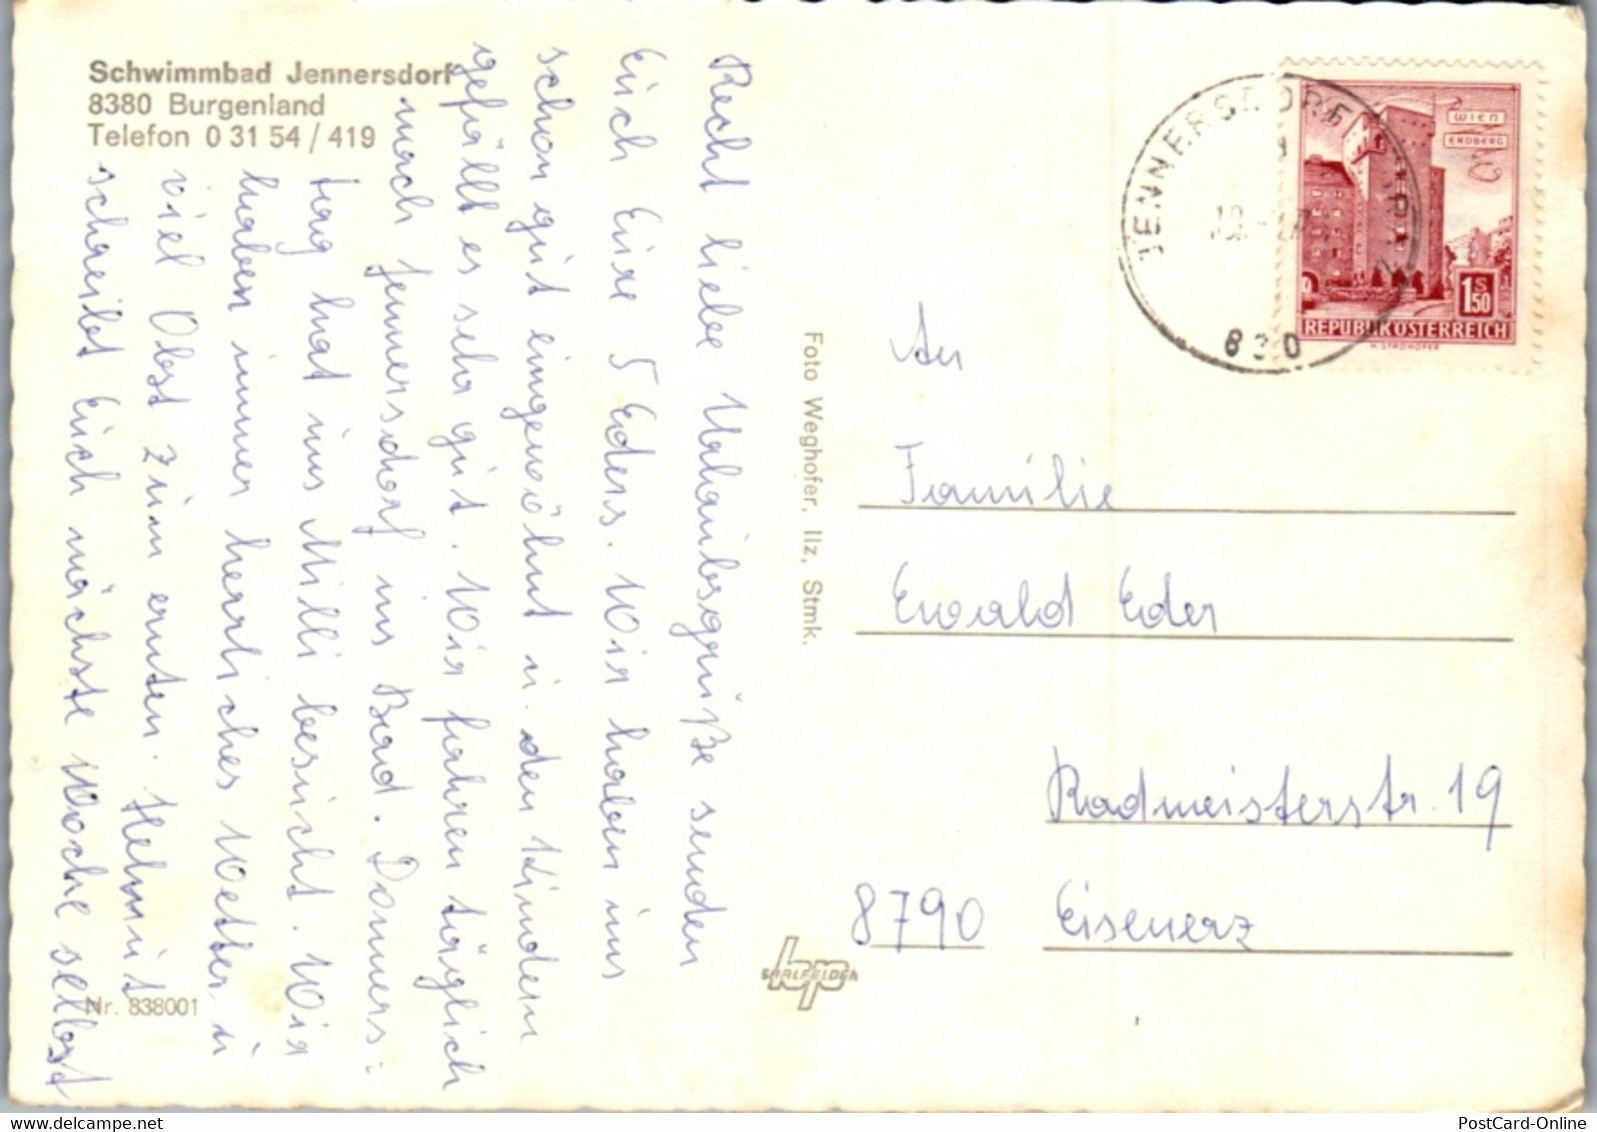 Schwimmbad Jennersdorf
8380 Burgenland
Telefon 0 31 54 / 419
Recht liebe Urlaubsgrüße senden
Euch Eure 5 Eders. Wir haben uns
schon gut eingewöhnt u. den Kindern
gefällt es sehr gut. Wir fahren täglich
nach Jennersdorf ins Bad. Donners:
tag hat uns Milli besucht. Wir
haben immer herrliches Wetter u
viel Obst zum ernten. Helmut
schreibt Euch nächste Woche selbst
Nr. 838001
Foto Weghofer, Ilz, Stmk.
SAALFELDEN
hp
JENNERSDORF
8380
WIEN
ERDBERG
1S50
REPUBLIK ÖSTERREICH
H. STROHOFER
An
Familie
Ewald Eder
Radmeisterstr. 19
8790 Eisenerz
PostCard-Online